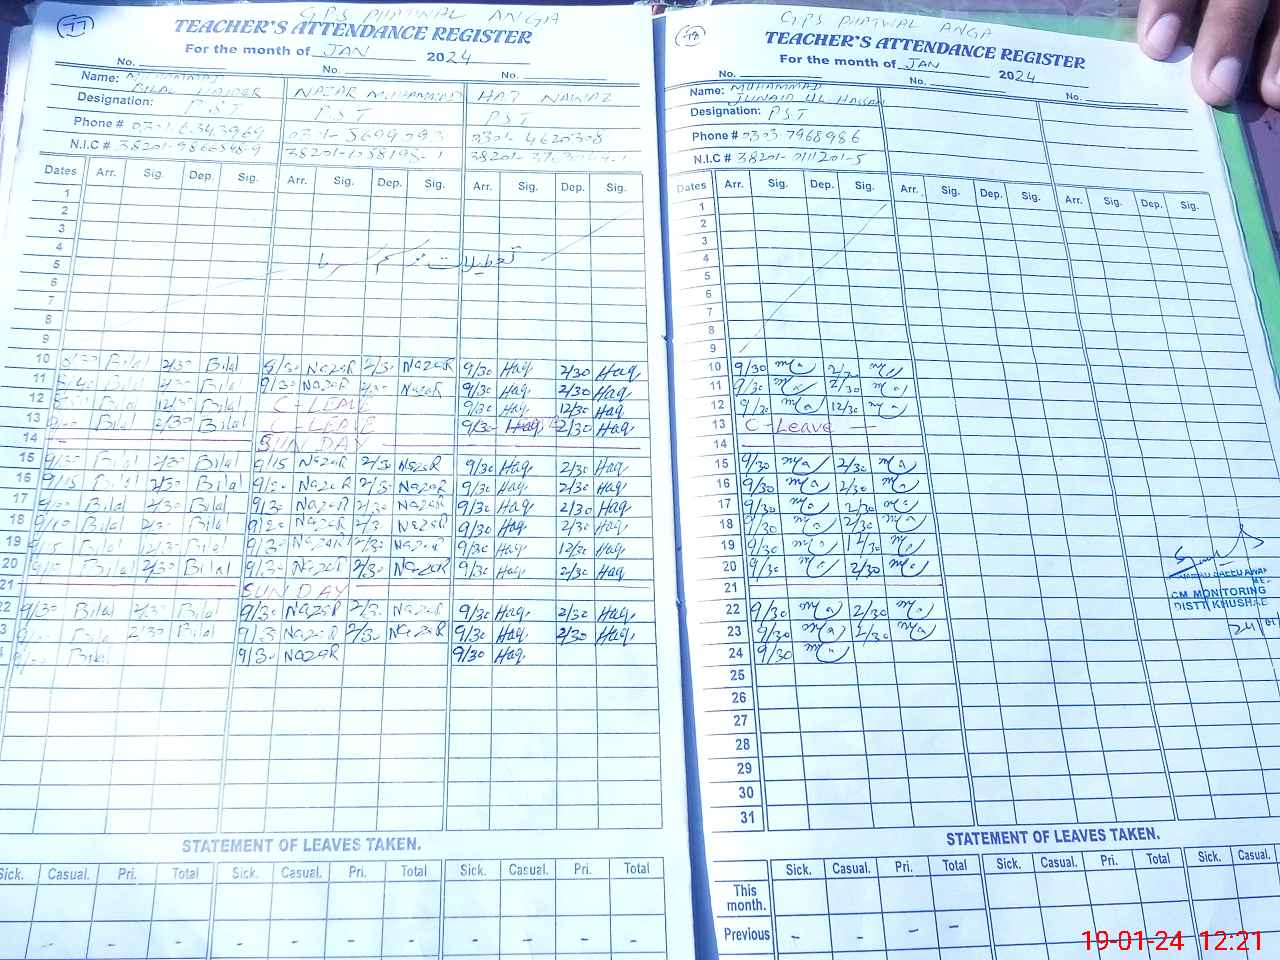 77
GPS PHATWAL ANGA
TEACHER'S ATTENDANCE REGISTER
For the month of JAN 2024
No. No. No.
Name: MUHAMMAD BILAL HAIDER NAZAR MUHAMMAD HAQ NAWAZ
Designation: P.S.T P.S.T P.S.T
Phone #
N.I.C #
Dates Arr. Sig. Dep. Sig. Arr. Sig. Dep. Sig. Arr. Sig. Dep. Sig.
1
2
3
4
5 تعطیلات موسم سرما
6
7
8
9
10 Bilal 2/30 Bilal NazaR 2/30 NazaR 9/30 Haq 2/30 Haq
11 Bilal 2/30 Bilal 9/30 NazaR 2/30 NazaR 9/30 Haq 2/30 Haq
12 Bilal 12/30 Bilal C-LEAVE 9/30 Haq 12/30 Haq
13 Bilal 2/30 Bilal C-LEAVE 9/30 Haq 2/30 Haq
14 SUNDAY
15 9/30 Bilal 2/30 Bilal 9/15 NazaR 2/30 NazaR 9/30 Haq 2/30 Haq
16 9/15 Bilal 2/30 Bilal 9/20 NazaR 2/30 NazaR 9/30 Haq 2/30 Haq
17 Bilal 2/30 Bilal 9/30 NazaR 2/30 NazaR 9/30 Haq 2/30 Haq
18 9/10 Bilal 2/30 Bilal 9/20 NazaR 2/30 NazaR 9/30 Haq 2/30 Haq
19 9/15 Bilal 12/30 Bilal 9/30 NazaR NazaR 9/30 Haq 12/30 Haq
20 9/15 Bilal 2/30 Bilal 9/30 NazaR 2/30 NazaR 9/30 Haq 2/30 Haq
21 SUNDAY
22 9/30 Bilal 2/30 Bilal 9/30 NazaR 2/30 NazaR 9/30 Haq 2/30 Haq
3 Bilal 2/30 Bilal 9/30 NazaR 2/30 NazaR 9/30 Haq 2/30 Haq
4 Bilal 9/30 NazaR 9/30 Haq
STATEMENT OF LEAVES TAKEN.
Sick. Casual. Pri. Total Sick. Casual. Pri. Total Sick. Casual. Pri. Total
- - - - - - - - - - - -
78
GPS PHATWAL ANGA
TEACHER'S ATTENDANCE REGISTER
For the month of JAN 2024
No. No. No.
Name: MUHAMMAD JUNAID UL HASSAN
Designation: P.S.T
Phone # 0303-7968986
N.I.C # 38201-0111201-5
Dates Arr. Sig. Dep. Sig. Arr. Sig. Dep. Sig. Arr. Sig. Dep. Sig.
1
2
3
4
5
6
7
8
9
10 9/30 2/30
11 9/30 2/30
12 9/30 12/30
13 C-Leave
14
15 9/30 2/30
16 9/30 2/30
17 9/30 2/30
18 9/30 2/30
19 9/30 12/30
20 9/30 2/30
21
22 9/30 2/30
23 9/30 2/30
24 9/30
25
26
27
28
29
30
31
CM MONITORING
DISTT KHUSHAB
24/01
STATEMENT OF LEAVES TAKEN.
Sick. Casual. Pri. Total Sick. Casual. Pri. Total Sick. Casual.
This month.
Previous - - - -
19-01-24 12:21